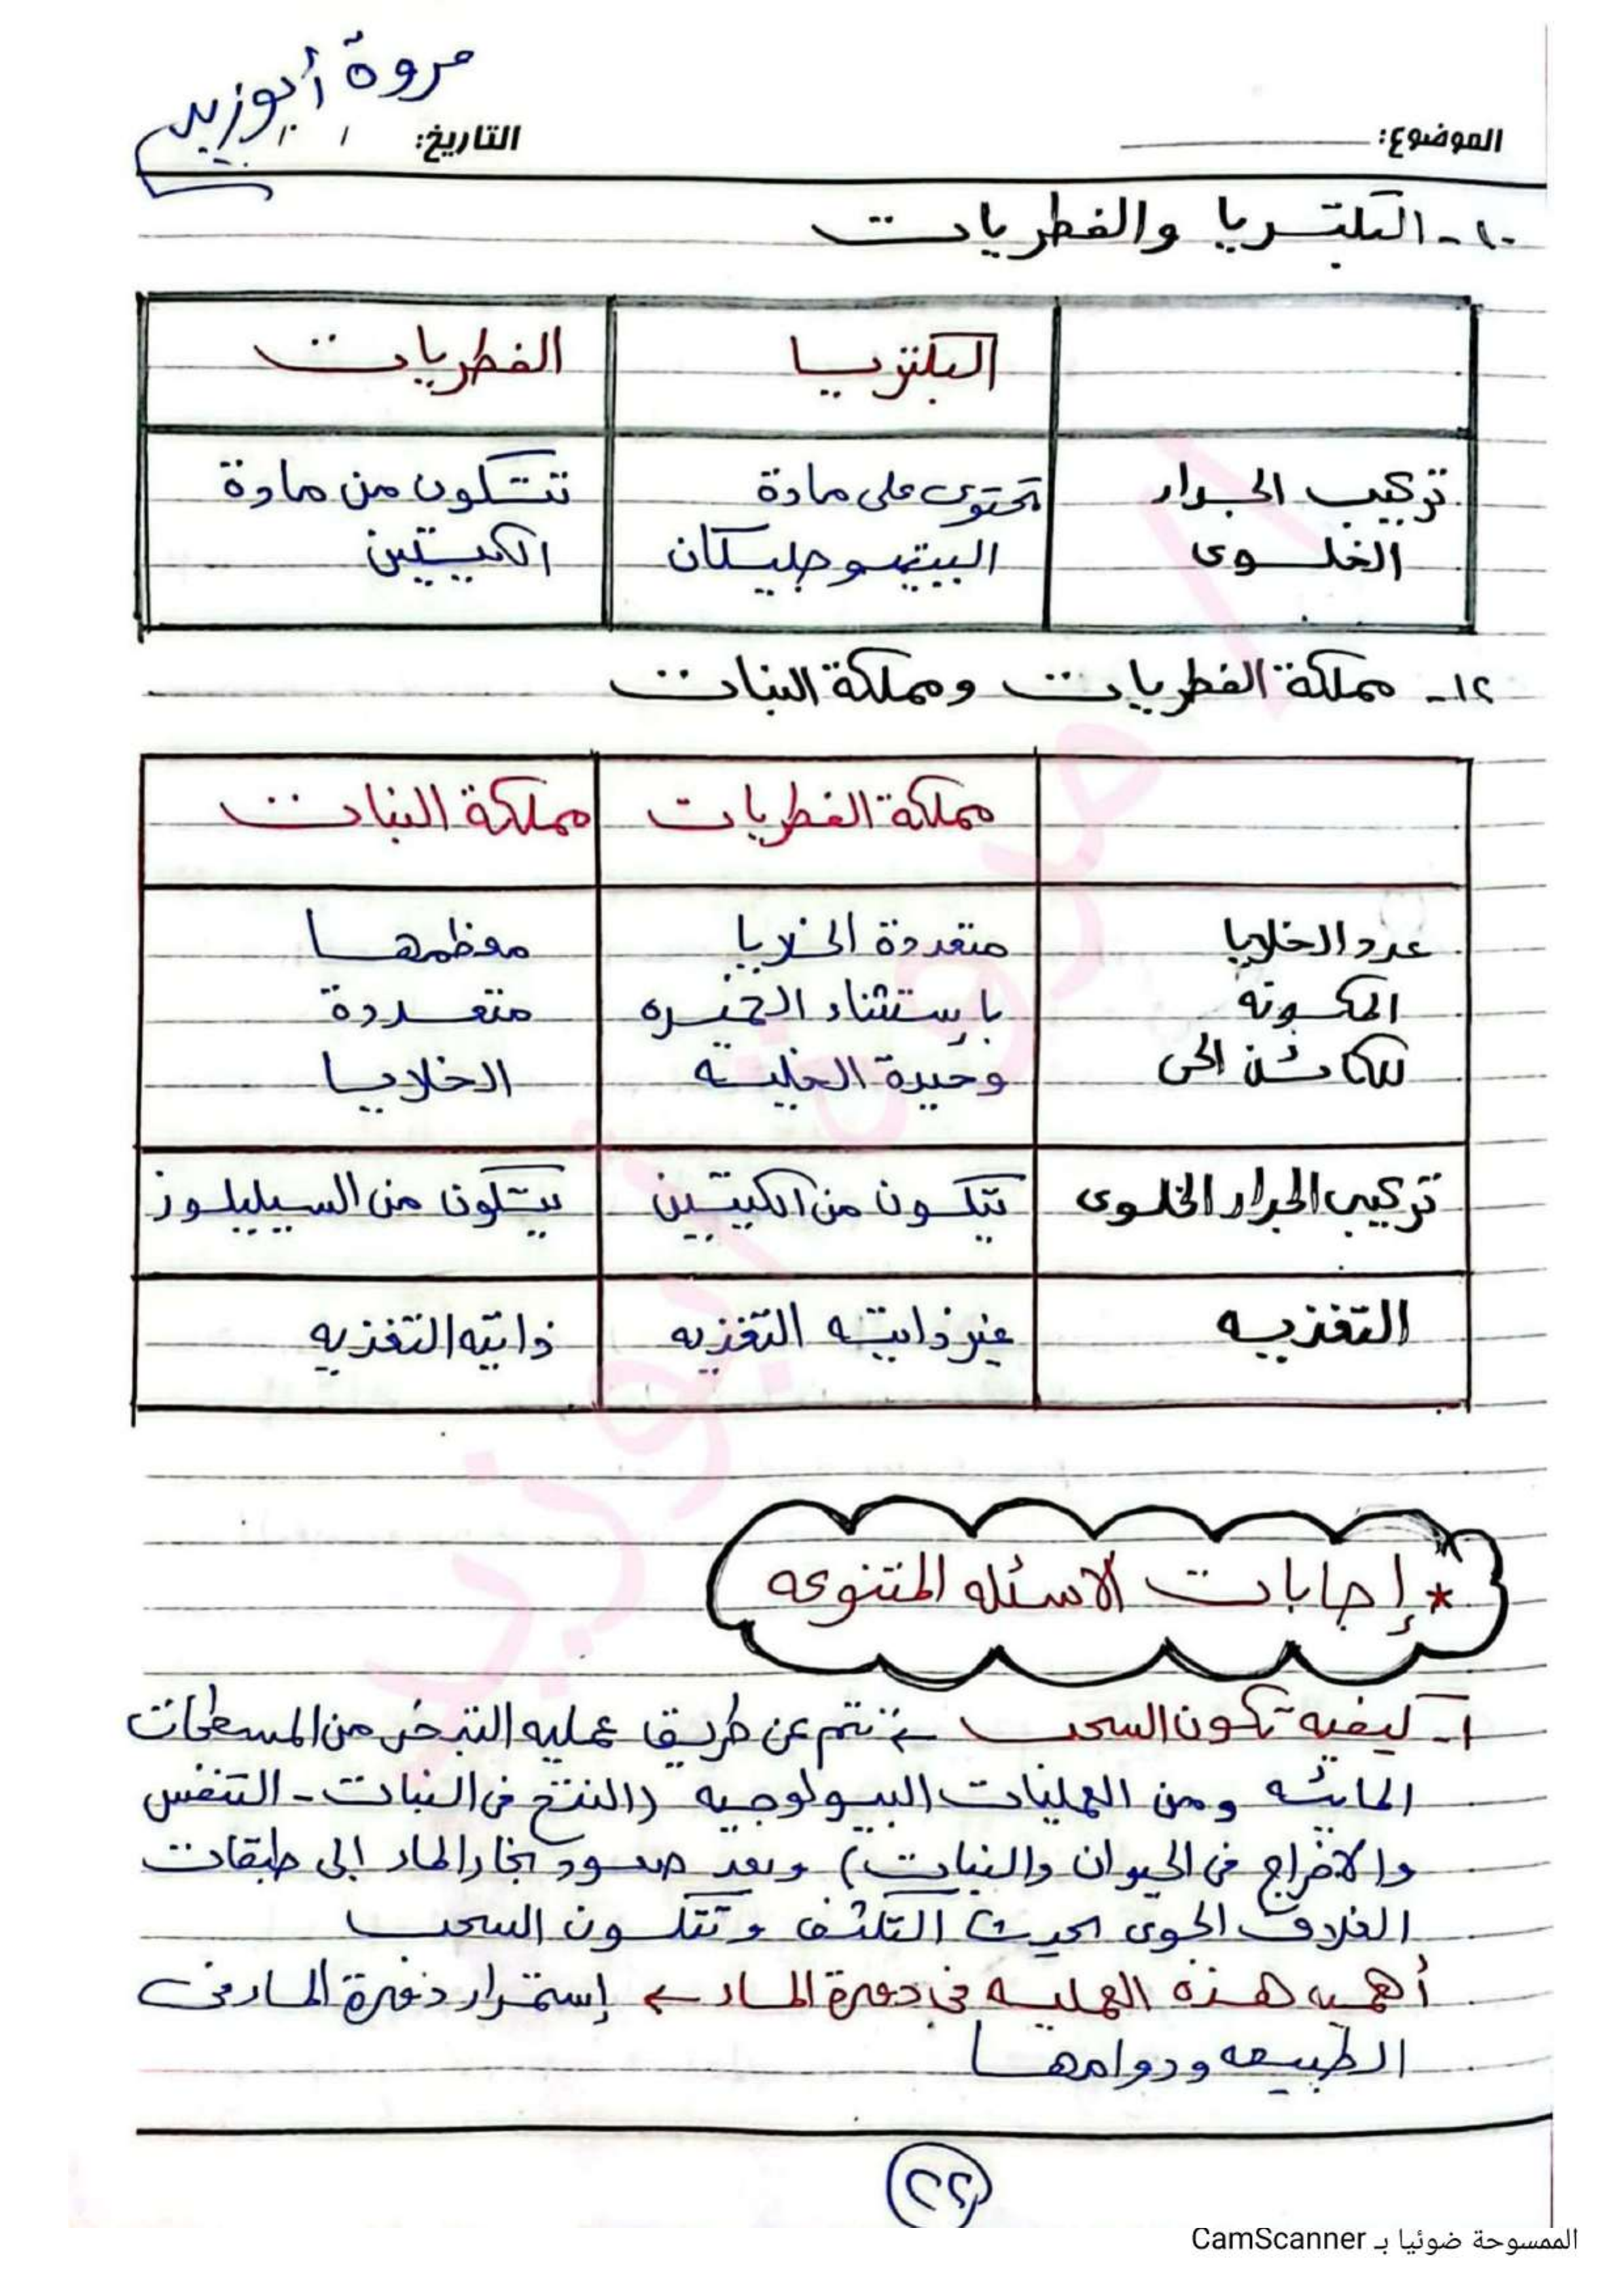 مروة أبوزيد
الموضوع: التاريخ: / /
١٠- البكتريا والفطريات
البكتريا الفطريات
تركيب الجدار تحتوى على مادة تتكون من مادة
الخلوى الببتيدوجليكان الكيتين
١٢- مملكة الفطريات ومملكة النبات
مملكة الفطريات مملكة النبات
عدد الخلايا متعددة الخلايا معظمها
المكونه باستثناء الخميره متعددة
للكائن الحى وحيدة الخليه الخلايا
تركيب الجدار الخلوى تتكون من الكيتين يتكون من السيليلوز
التغذيه غير ذاتيه التغذيه ذاتيه التغذيه
* إجابات الاسئله المتنوعه
١- كيفيه تكون السحب ← تتم عن طريق عمليه التبخر من المسطحات
المائيه ومن العمليات البيولوجيه (النتح فى النبات - التنفس
والاخراج فى الحيوان والنبات) وبعد صعود بخار الماء الى طبقات
الغلاف الجوى يحدث التكثف وتتكون السحب
أهميه هذه العمليه فى دورة الماء ← إستمرار دورة الماء فى
الطبيعه ودوامها
٢٢
الممسوحة ضوئيا بـ CamScanner